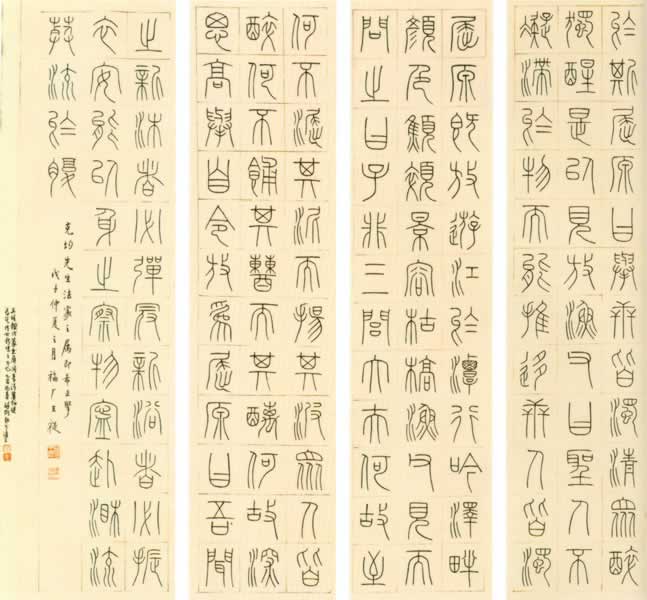 於斯屈原曰舉世皆濁清眾醉
獨醒是以見放漁父曰聖人不
凝滯於物而能推移世人皆濁
屈原既放遊江於潭行吟澤畔
顏色顦顇景容枯槁漁父見而
問之曰子非三閭大夫何故至
何不淈其泥而揚其波眾人皆
醉何不餔其糟而其醨何故深
思高舉自令放為屈原曰吾聞
之新沐者必彈冠新浴者必振
衣安能以身之察物寧赴湘流
流於
先生法家之屬即希正
戊子仲夏之月福厂王禔